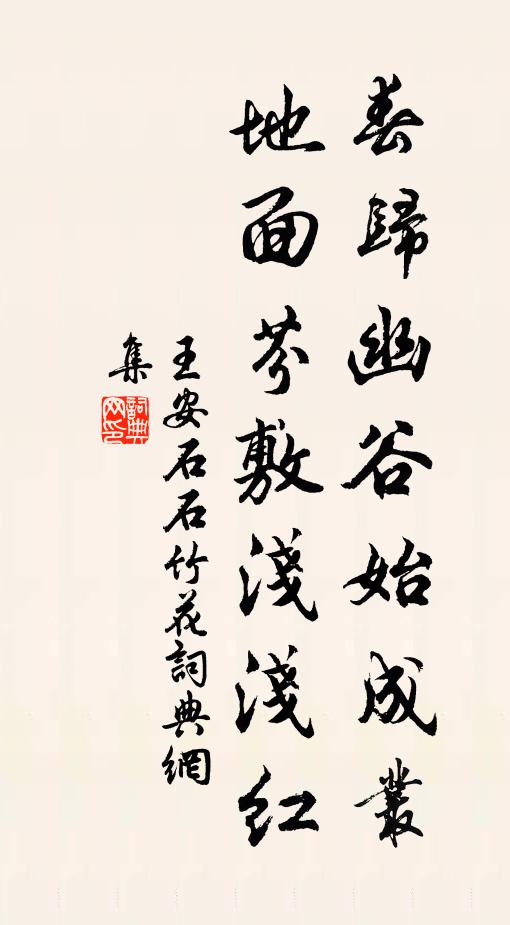 春歸幽谷始成叢
地面芬敷淺淺紅
王安石石竹花詞典網
集
詞典网印